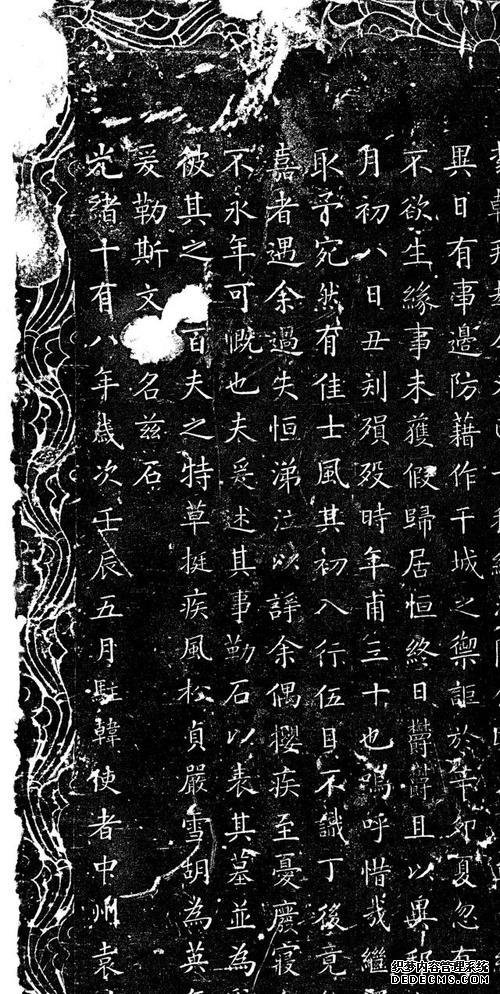 異日有事邊防藉作干城之禦詎於辛卯夏忽有
不欲生緣事未獲假歸居恒終日欝欝且以異
月初八日丑刻殞歿時年甫三十也嗚呼惜哉繼
取予宛然有佳士風其初入行伍目不識丁後竟
嘉者遇余過失恒涕泣以諍余偶攖疾至憂廢寢
不永年可慨也夫爰述其事勒石以表其墓並為
彼其之百夫之特草挺疾風松貞嚴雪胡為英
爰勒斯文名兹石
光諸十有八年歲次壬辰五月駐韓使者中州袁
织梦内容管理系统
DEDECMS.COM